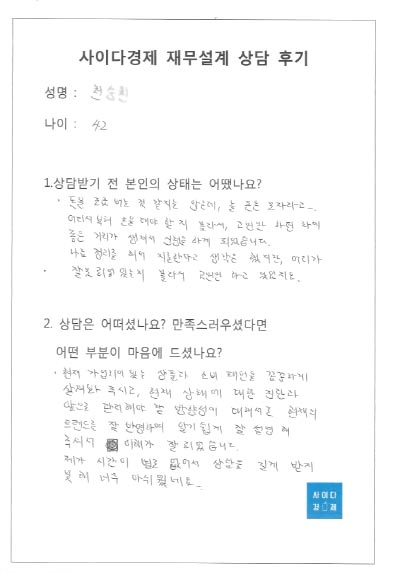 사이다경제 재무설계 상담 후기
성명 :
나이 : 42
1.상담받기 전 본인의 상태는 어땠나요?
돈을 조금 버는 것 같지는 않은데, 늘 돈은 모자라고..
어디서부터 손을 대야 할 지 몰라서, 고민만 하던 차에
좋은 기회가 생겨서 신청을 하게 되었습니다.
나름 정리를 해서 지출한다고 생각은 했지만, 어디가
잘못 되어 있는지 몰라서 고민만 하고 있었지요.
2. 상담은 어떠셨나요? 만족스러우셨다면
어떤 부분이 마음에 드셨나요?
현재 가입되어 있는 상품과 소비 패턴을 꼼꼼하게
살펴봐 주시고, 현재 상태에 대한 진단과
앞으로 관리해야 할 방향성에 대해서도 현재의
트렌드를 잘 반영하여 알기쉽게 잘 설명 해
주시서 이해가 잘 되었습니다.
제가 시간이 별로 없어서 상담을 길게 받지
못해 너무 아쉬웠네요..
사이다
경제